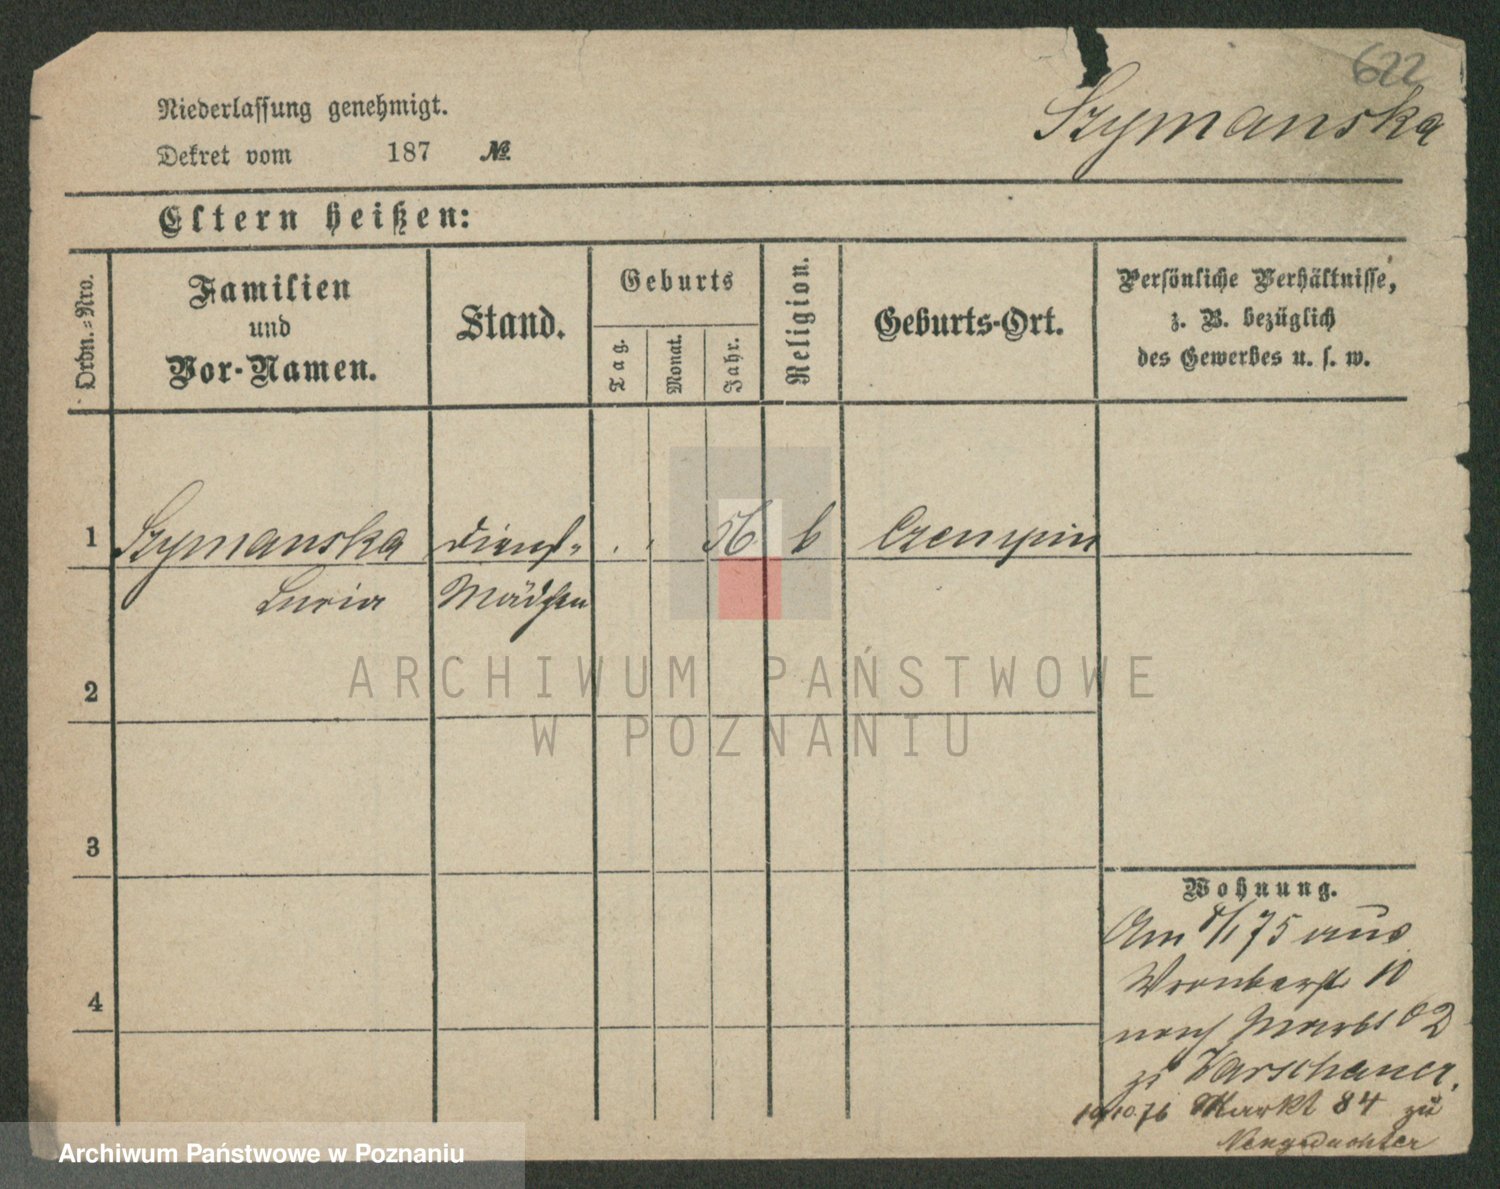 622
Szymanska
Niederlassung genehmigt.
Dekret vom 187 №
Eltern heißen:
Ordn.=Nro.
Familien
und
Vor-Namen.
Stand.
Geburts
Tag.
Monat.
Jahr.
Religion.
Geburts-Ort.
Persönliche Verhältnisse,
z. B. bezüglich
des Gewerbes u. s. w.
1 Szymanska Dienst- 56 k Czempin
Mädchen
2
3
4
Wohnung.
Am /75 aus
10
nach Markt 82
zu Warschauer.
10/10.76 Markt 84 zu
ARCHIWUM PAŃSTWOWE
W POZNANIU
Archiwum Państwowe w Poznaniu